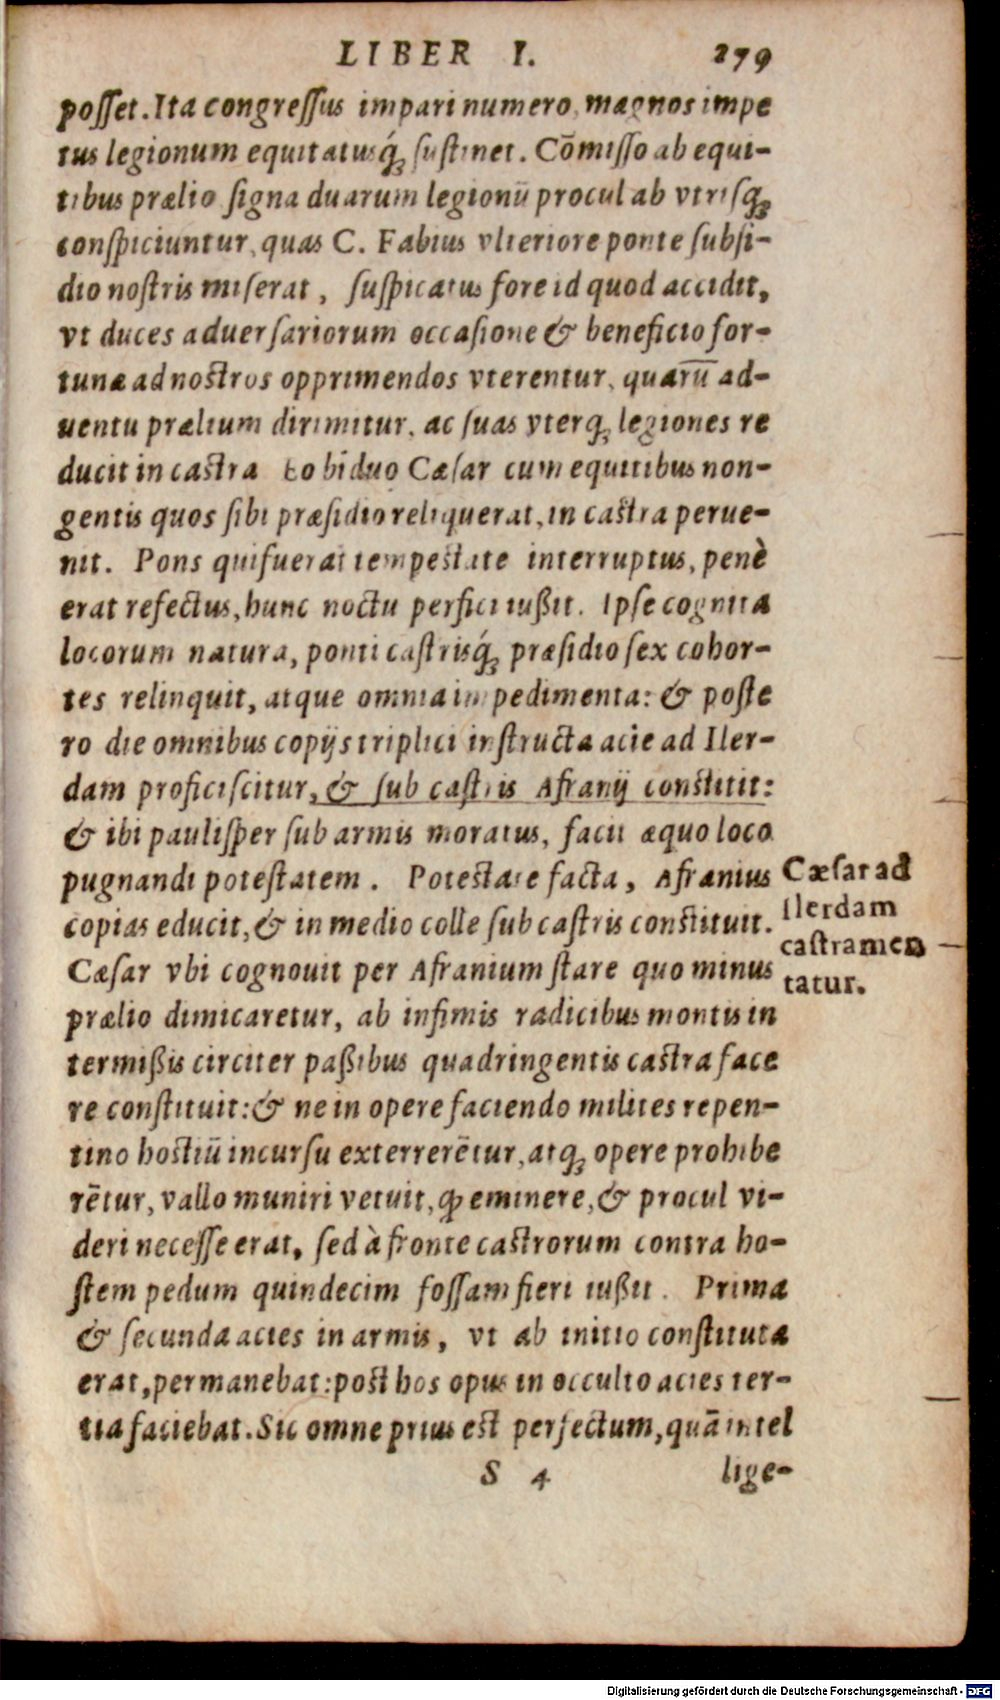 LIBER I. 279
posset. Ita congressus impari numero, magnos impe
tus legionum equitatusq́; sustinet. Cōmisso ab equi-
tibus prælio signa duarum legionū procul ab vtrisq;
conspiciuntur, quas C. Fabius vlteriore ponte subsi-
dio nostris miserat, suspicatus fore id quod accidit,
vt duces aduersariorum occasione & beneficio for-
tunæ ad nostros opprimendos vterentur, quarū ad-
uentu prælium dirimitur, ac suas vterq; legiones re
ducit in castra Eo biduo Cæsar cum equitibus non-
gentis quos sibi præsidio reliquerat, in castra perue-
nit. Pons qui fuerat tempestate interruptus, penè
erat refectus, hunc noctu perfici iußit. Ipse cognita
locorum natura, ponti castrisq́; præsidio sex cohor-
tes relinquit, atque omnia impedimenta: & poste
ro die omnibus copijs triplici instructa acie ad Iler-
dam proficiscitur, & sub castris Afranij constitit:
& ibi paulisper sub armis moratus, facit æquo loco
pugnandi potestatem. Potestate facta, Afranius
copias educit, & in medio colle sub castris constituit.
Cæsar vbi cognouit per Afranium stare quo minus
prælio dimicaretur, ab infimis radicibus montis in
termißis circiter paßibus quadringentis castra face
re constituit: & ne in opere faciendo milites repen-
tino hostiū incursu exterrerētur, atq; opere prohibe
rētur, vallo muniri vetuit, ꝙ eminere, & procul vi-
deri necesse erat, sed à fronte castrorum contra ho-
stem pedum quindecim fossam fieri iußit. Prima
& secunda acies in armis, vt ab initio constituta
erat, permanebat: post hos opus in occulto acies ter-
tia faciebat. Sic omne prius est perfectum, quā intel
S 4 lige-
Cæsar ad
Ilerdam
castramen
tatur.
Digitalisierung gefördert durch die Deutsche Forschungsgemeinschaft - DFG